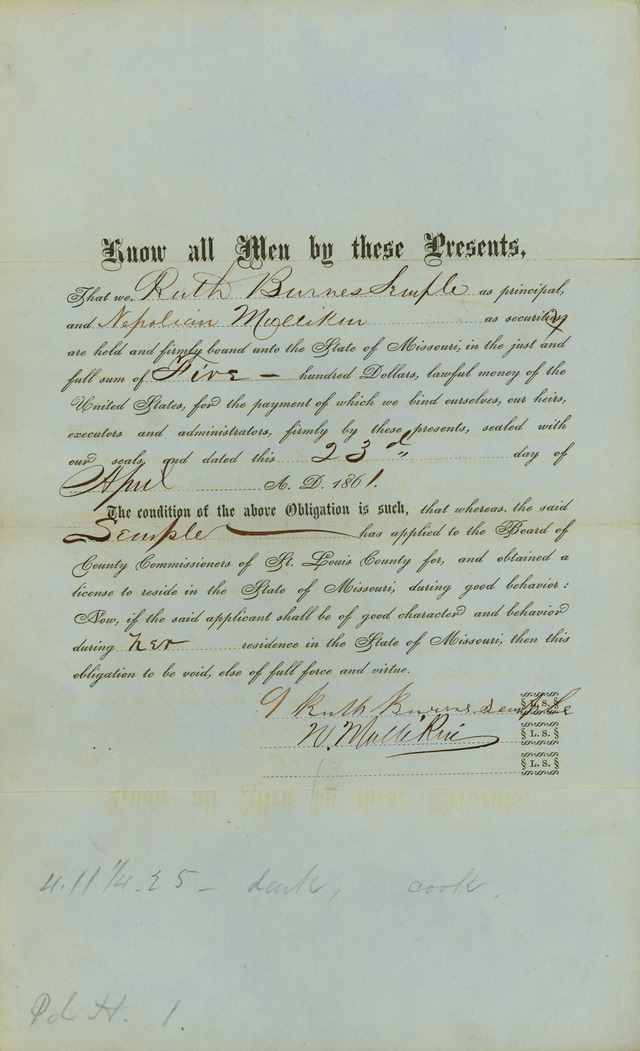 Know all Men by these Presents,
That we, Ruth Burnes Semple as principal,
and Nepolian Mullikin as securities
are held and firmly bound unto the State of Missouri, in the just and
full sum of Five — hundred Dollars, lawful money of the
United States, for the payment of which we bind ourselves, our heirs,
executors and administrators, firmly by these presents, sealed with
our seals, and dated this 23d day of
April A. D. 1861.
The condition of the above Obligation is such, that whereas, the said
Semple has applied to the Board of
County Commissioners of St. Louis County for, and obtained a
license to reside in the State of Missouri, during good behavior:
Now, if the said applicant shall be of good character and behavior
during her residence in the State of Missouri, then this
obligation to be void, else of full force and virtue.
Ruth Burnes Semple L. S.
N. Mullikin L. S.
L. S.
4.11 1/4 - 25 - dark, cook.
Pd H. 1.